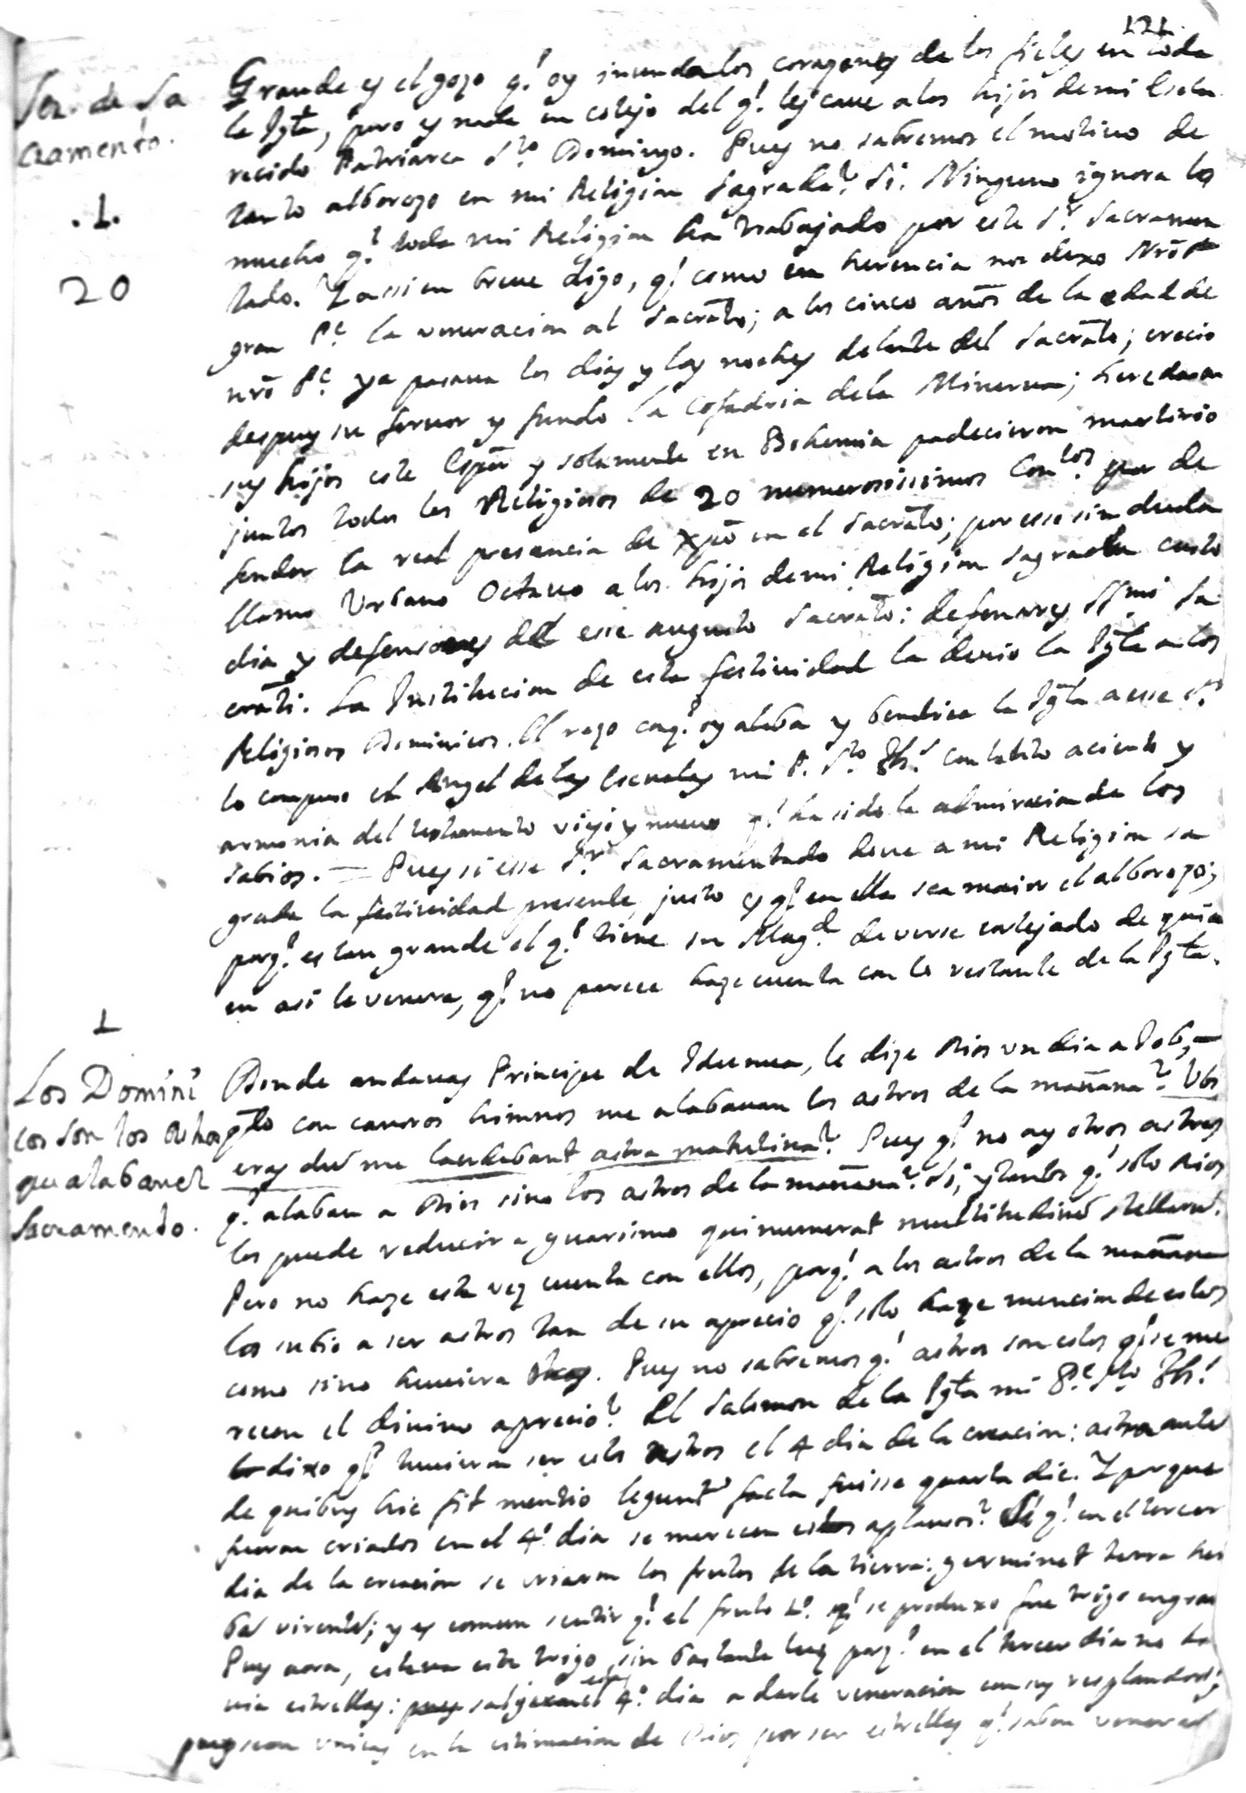 121.
Ser. de Sa
cramento.
.1.
20
Grande es el gozo q.e oy inunda los corazones de los fieles en toda
la Igla, pero es nada en cotejo del q.e les caue a los hijos de mi Escla
recido Patriarca S.to Domingo. Pues no sabremos el motiuo de
tanto alborozo en mi Religion Sagrada? Si. Ninguno ignora lo
mucho q.e toda mi Religion ha trabajado por este S.r Sacramen
tado. Y assi en breue digo, q.e como en herencia nos dexo Nrō
gran P.e la veneracion al Sacrāto; a los cinco años de la edad de
nrō P.e ya pasaua los dias y las noches delante del Sacrāto; crecio
despues su feruor y fundo la Cofadria de la Minerua; heredaron
sus hijos este Espū y solamente en Bohemia padecieron martirio
juntos todos los Religiosos de 20 numerosissimos Con.tos por de
fender la real presencia de Xpō en el Sacrāto; por esso sin duda
llamo Vrbano Octauo a los hijos de mi Religion Sagrada custo
dia y defensores del esse augusto Sacrāto: defensores SS.mi Sa
crāti. La Institucion de esta festiuidad la deuio la Igla a los
Religiosos Dominicos. El rezo con q.e oy alaba y bendice la Igla a esse S.r
lo compuso el Angel de las Escuelas mi P. S.to Th.s con tanto acierto y
armonia del testamento viejo y nueuo q.e ha sido la admiracion de los
sabios. = Pues si esse S.r Sacramentado deue a mi Religion sa
grada la festiuidad presente, justo es q.e en ella sea maior el alborozo;
porq.e es tan grande el q.e tiene su Mag.d de verse cortejado de quien
en asi le venera, q.e no parece haze cuenta con lo restante de la Igla.
1
Los Domini
cos son los
que alaban el
Sacramento.
Donde andauas Principe de Idumea, le dize Dios vn dia a Job,
q.do con canoros himnos me alabauan los astros de la mañana? Vbi
eras dum me laudabant astra matutina? Pues q.e no ay otros astros
q.e alaban a Dios sino los astros de la mañana? Si, y tantos q.e solo Dios
los puede reducir a guarismo qui numerat multitudinē stellarū.
Pero no haze esta vez cuenta con ellos, porq.e a los astros de la mañana
los subio a ser astros tan de su aprecio q.e solo haze mencion de estos
como si no huuiera. Pues no sabremos q.e astros son estos q.e se me
recen el diuino aprecio? El Salomon de la Igla mi P.e S.to Th.s
dixo q.e tuuieron ser estos astros el 4 dia de la creacion: astra autē
de quibus hic fit mentio legunt.r facta fuisse quarta die. Y porque
fueron criados en el 4.o dia se merecen estos aplausos? Si q.e en el tercer
dia de la creacion se criaron los frutos de la tierra: germinet terra her
bā virentē; y es comun sentir q.e el fruto 1.o q.e se produxo fue trigo en gran
Pues aora, estaua este trigo sin bastante luz porq.e en el tercer dia no ha
uia estrellas: salgan estas el 4.o dia a darle veneracion con sus resplandores;
pues sean vnicas en la estimacion de Dios por ser estrellas q.e saben venerar